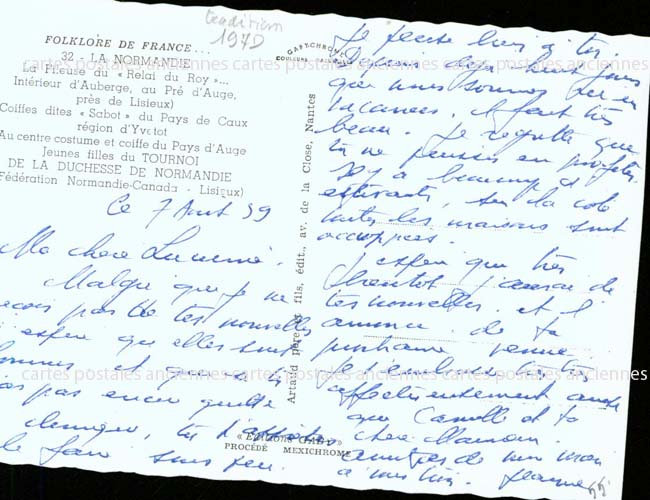 tradition
1970
FOLKLORE DE FRANCE...
32. LA NORMANDIE
La Fileuse du « Relai du Roy »...
Intérieur d'Auberge, au Pré d'Auge,
près de Lisieux)
Coiffes dites « Sabot » du Pays de Caux
région d'Yvetot
Au centre costume et coiffe du Pays d'Auge
Jeunes filles du TOURNOI
DE LA DUCHESSE DE NORMANDIE
Fédération Normandie-Canada - Lisieux)
Ce 7 Août 59
Ma chère
Malgré que je ne
reçois pas de tes nouvelles
j'espère qu'elles sont
bonnes et que tu
pas encore
le faire sans
GAFTCHROME
COULEURS
Artaud père et fils, édit., av. de la Close, Nantes
« Editions GABY »
PROCÉDÉ MEXICHROME
Je pense bien à toi.
Depuis déjà huit jours
que nous sommes ici en
vacances. Il fait très
beau. Je regrette que
tu ne puisses en profiter.
Il y a beaucoup d'
estivants, sur la côte
toutes les maisons sont
occupées.
J'espère que très
bientôt j'aurai de
tes nouvelles et l'
annonce de ta
prochaine venue.
Je t'embrasse très
affectueusement ainsi
que Camille et ta
chère Maman.
amitiés de mon mari
à vous tous. Jeanne
cartes postales anciennes cartes postales anciennes cartes postales anciennes
cartes postales anciennes cartes postales anciennes cartes postales anciennes